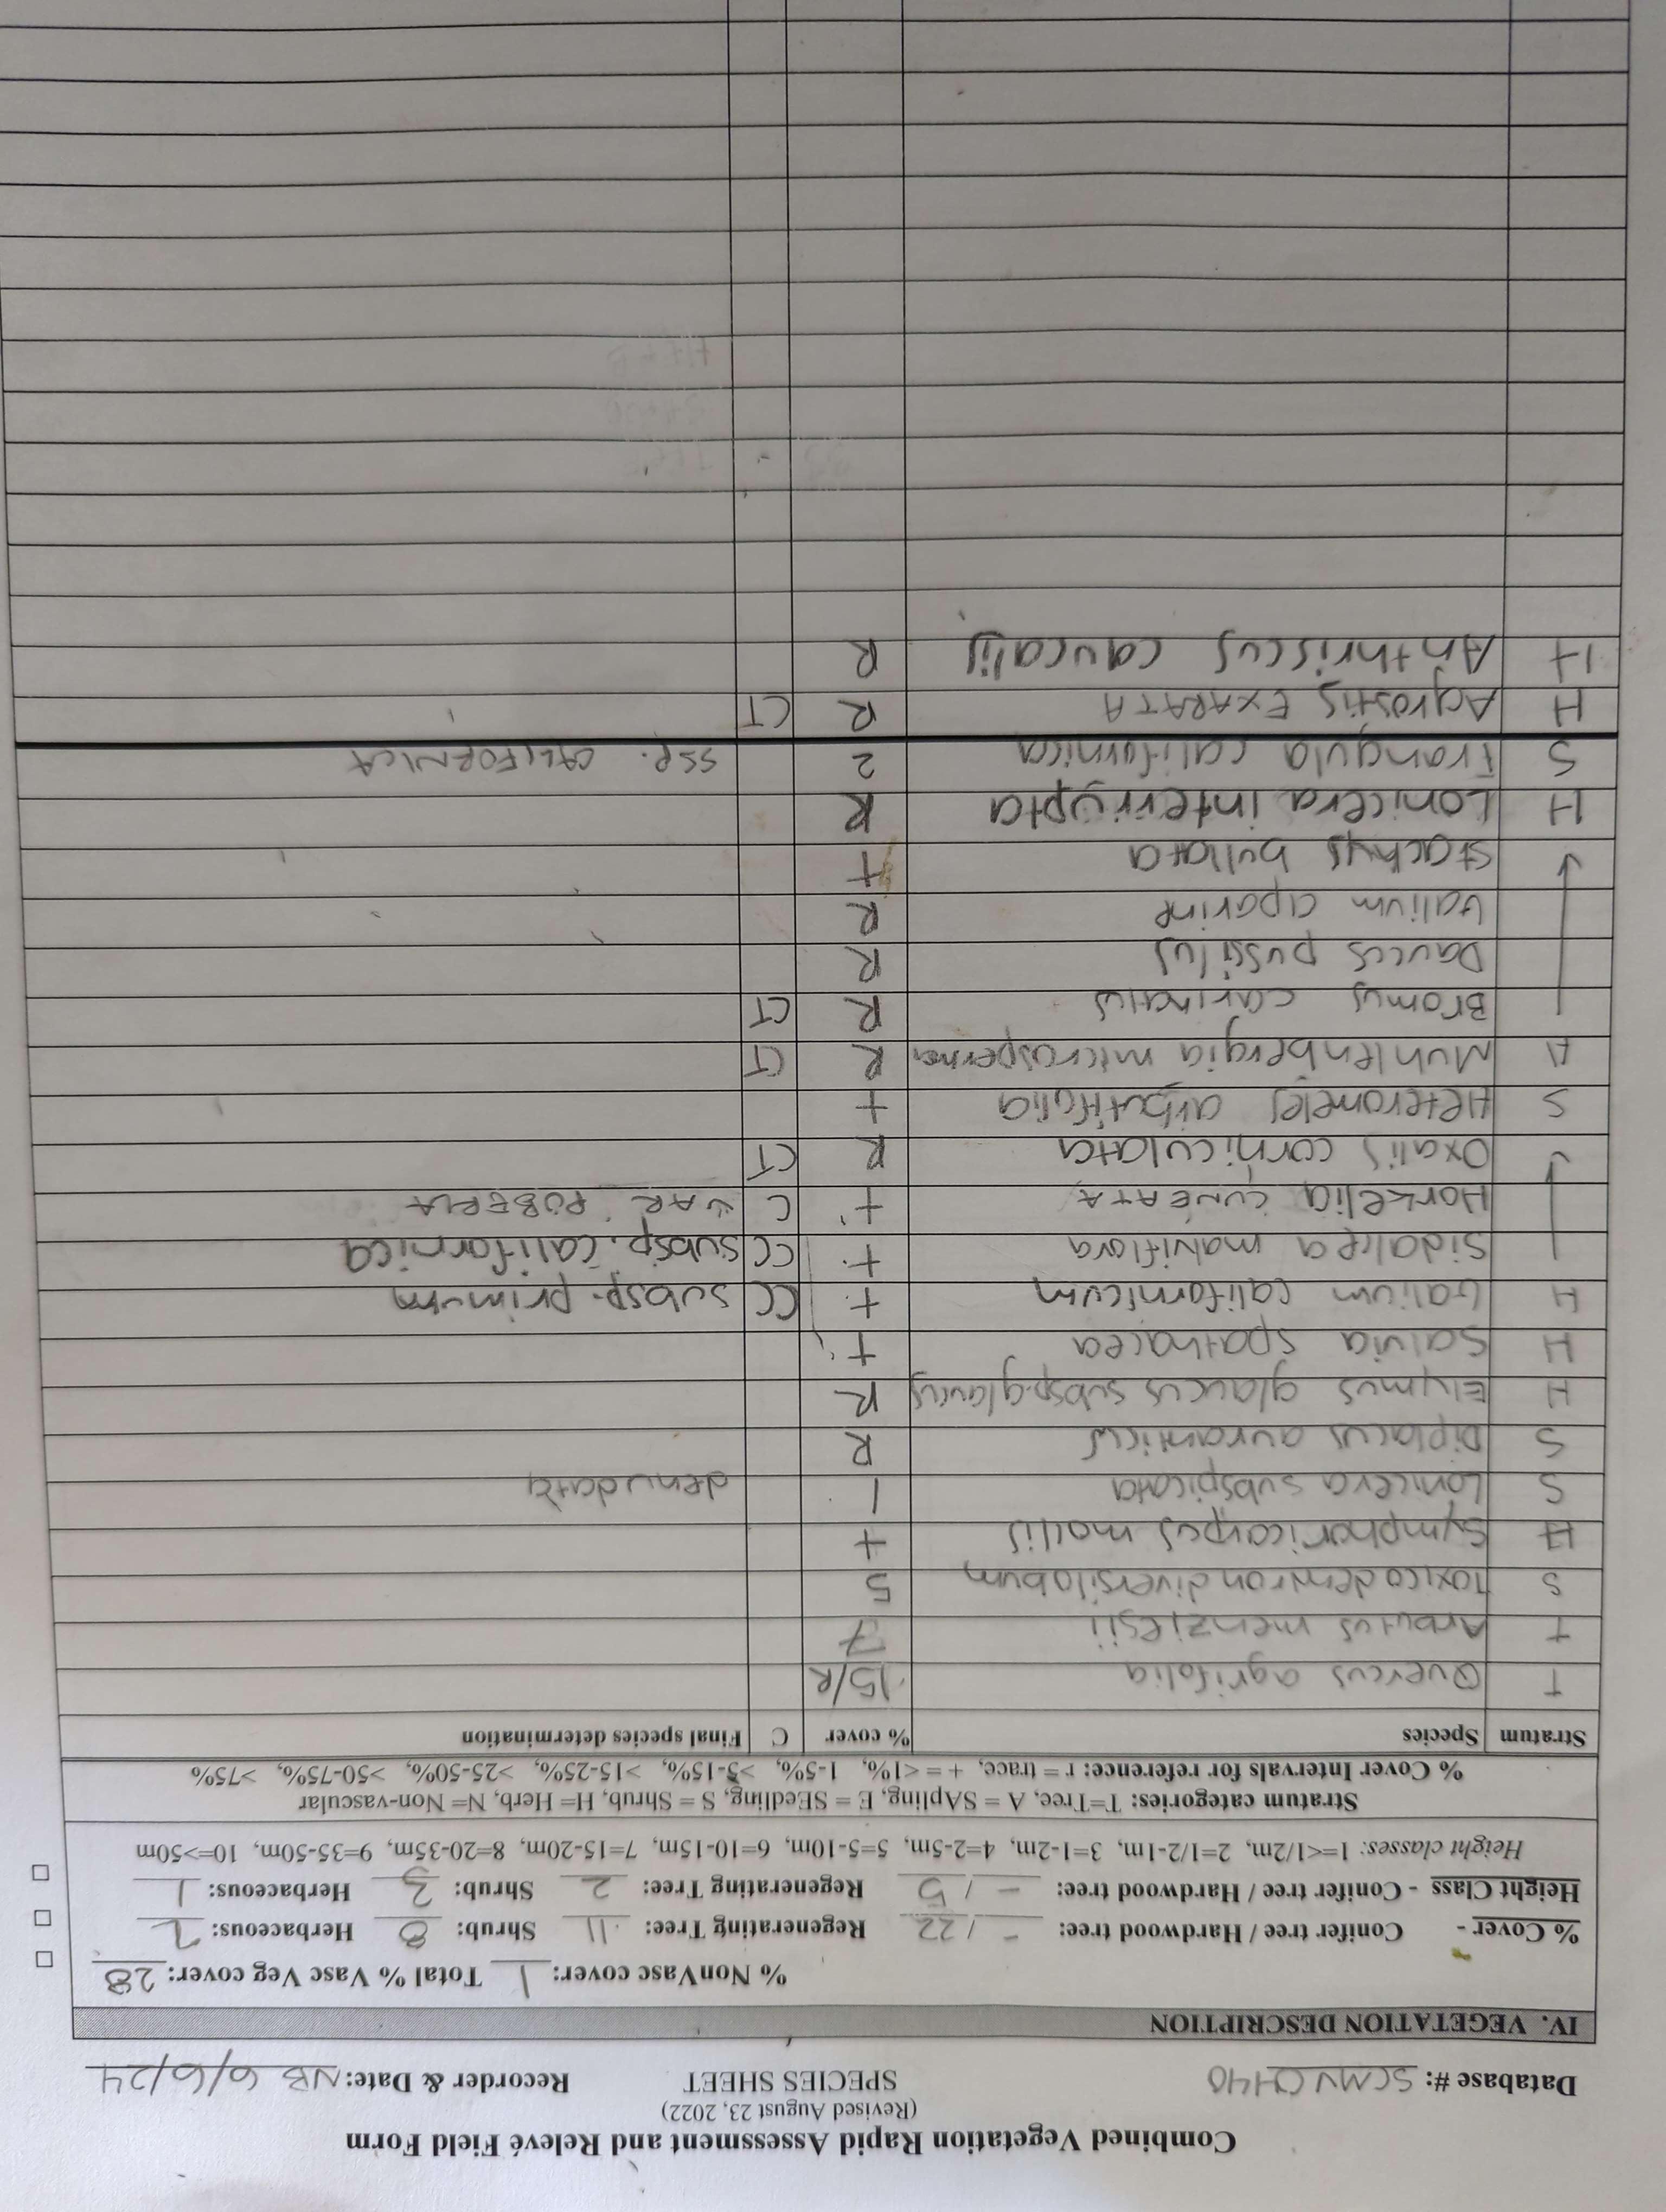 Combined Vegetation Rapid Assessment and Relevé Field Form
(Revised August 23, 2022)
Database #: SCMVCH40 SPECIES SHEET Recorder & Date: NB 6/6/24
IV. VEGETATION DESCRIPTION
% NonVasc cover: 1 Total % Vasc Veg cover: 28
% Cover - Conifer tree / Hardwood tree: - / 22 Regenerating Tree: 11 Shrub: 8 Herbaceous: 2
Height Class - Conifer tree / Hardwood tree: - / 5 Regenerating Tree: 2 Shrub: 3 Herbaceous: 1
Height classes: 1=<1/2m, 2=1/2-1m, 3=1-2m, 4=2-5m, 5=5-10m, 6=10-15m, 7=15-20m, 8=20-35m, 9=35-50m, 10=>50m
Stratum categories: T=Tree, A = SApling, E = SEedling, S = Shrub, H= Herb, N= Non-vascular
% Cover Intervals for reference: r = trace, + = <1%, 1-5%, >5-15%, >15-25%, >25-50%, >50-75%, >75%
Stratum Species % cover C Final species determination
T Quercus agrifolia 15/R
T Arbutus menziesii 7
S Toxicodendron diversilobum 5
H Symphoricarpos mollis +
S Lonicera subspicata 1 denudata
S Diplacus auranticus R
H Elymus glaucus subsp. glaucus R
H Salvia spathacea +
H Galium californicum + CC subsp. primum
Sidalcea malviflora + CC subsp. californica
Horkelia CUNEATA + C VAR. PUBERLA
Oxalis corniculata R CT
S Heteromeles arbutifolia +
H Muhlenbergia microsperma R CT
Bromus carinatus R CT
Daucus pussilus R
Galium aparine R
Stachys bullata +
H Lonicera interrupta R
S Frangula californica 2 SSP. CALIFORNICA
H Agrostis EXARATA R CT
H Anthriscus caucalis R